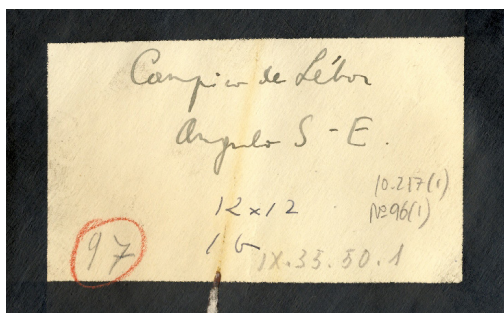 Campico de Lébor
Angulo S-E.
10.217(1)
12x12
Nº96(1)
97
16
IX.33.50.1